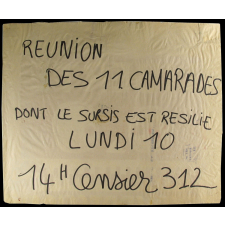 REUNION
DES 11 CAMARADES
DONT LE SURSIS EST RESILIE
LUNDI 10
14H Censier 312